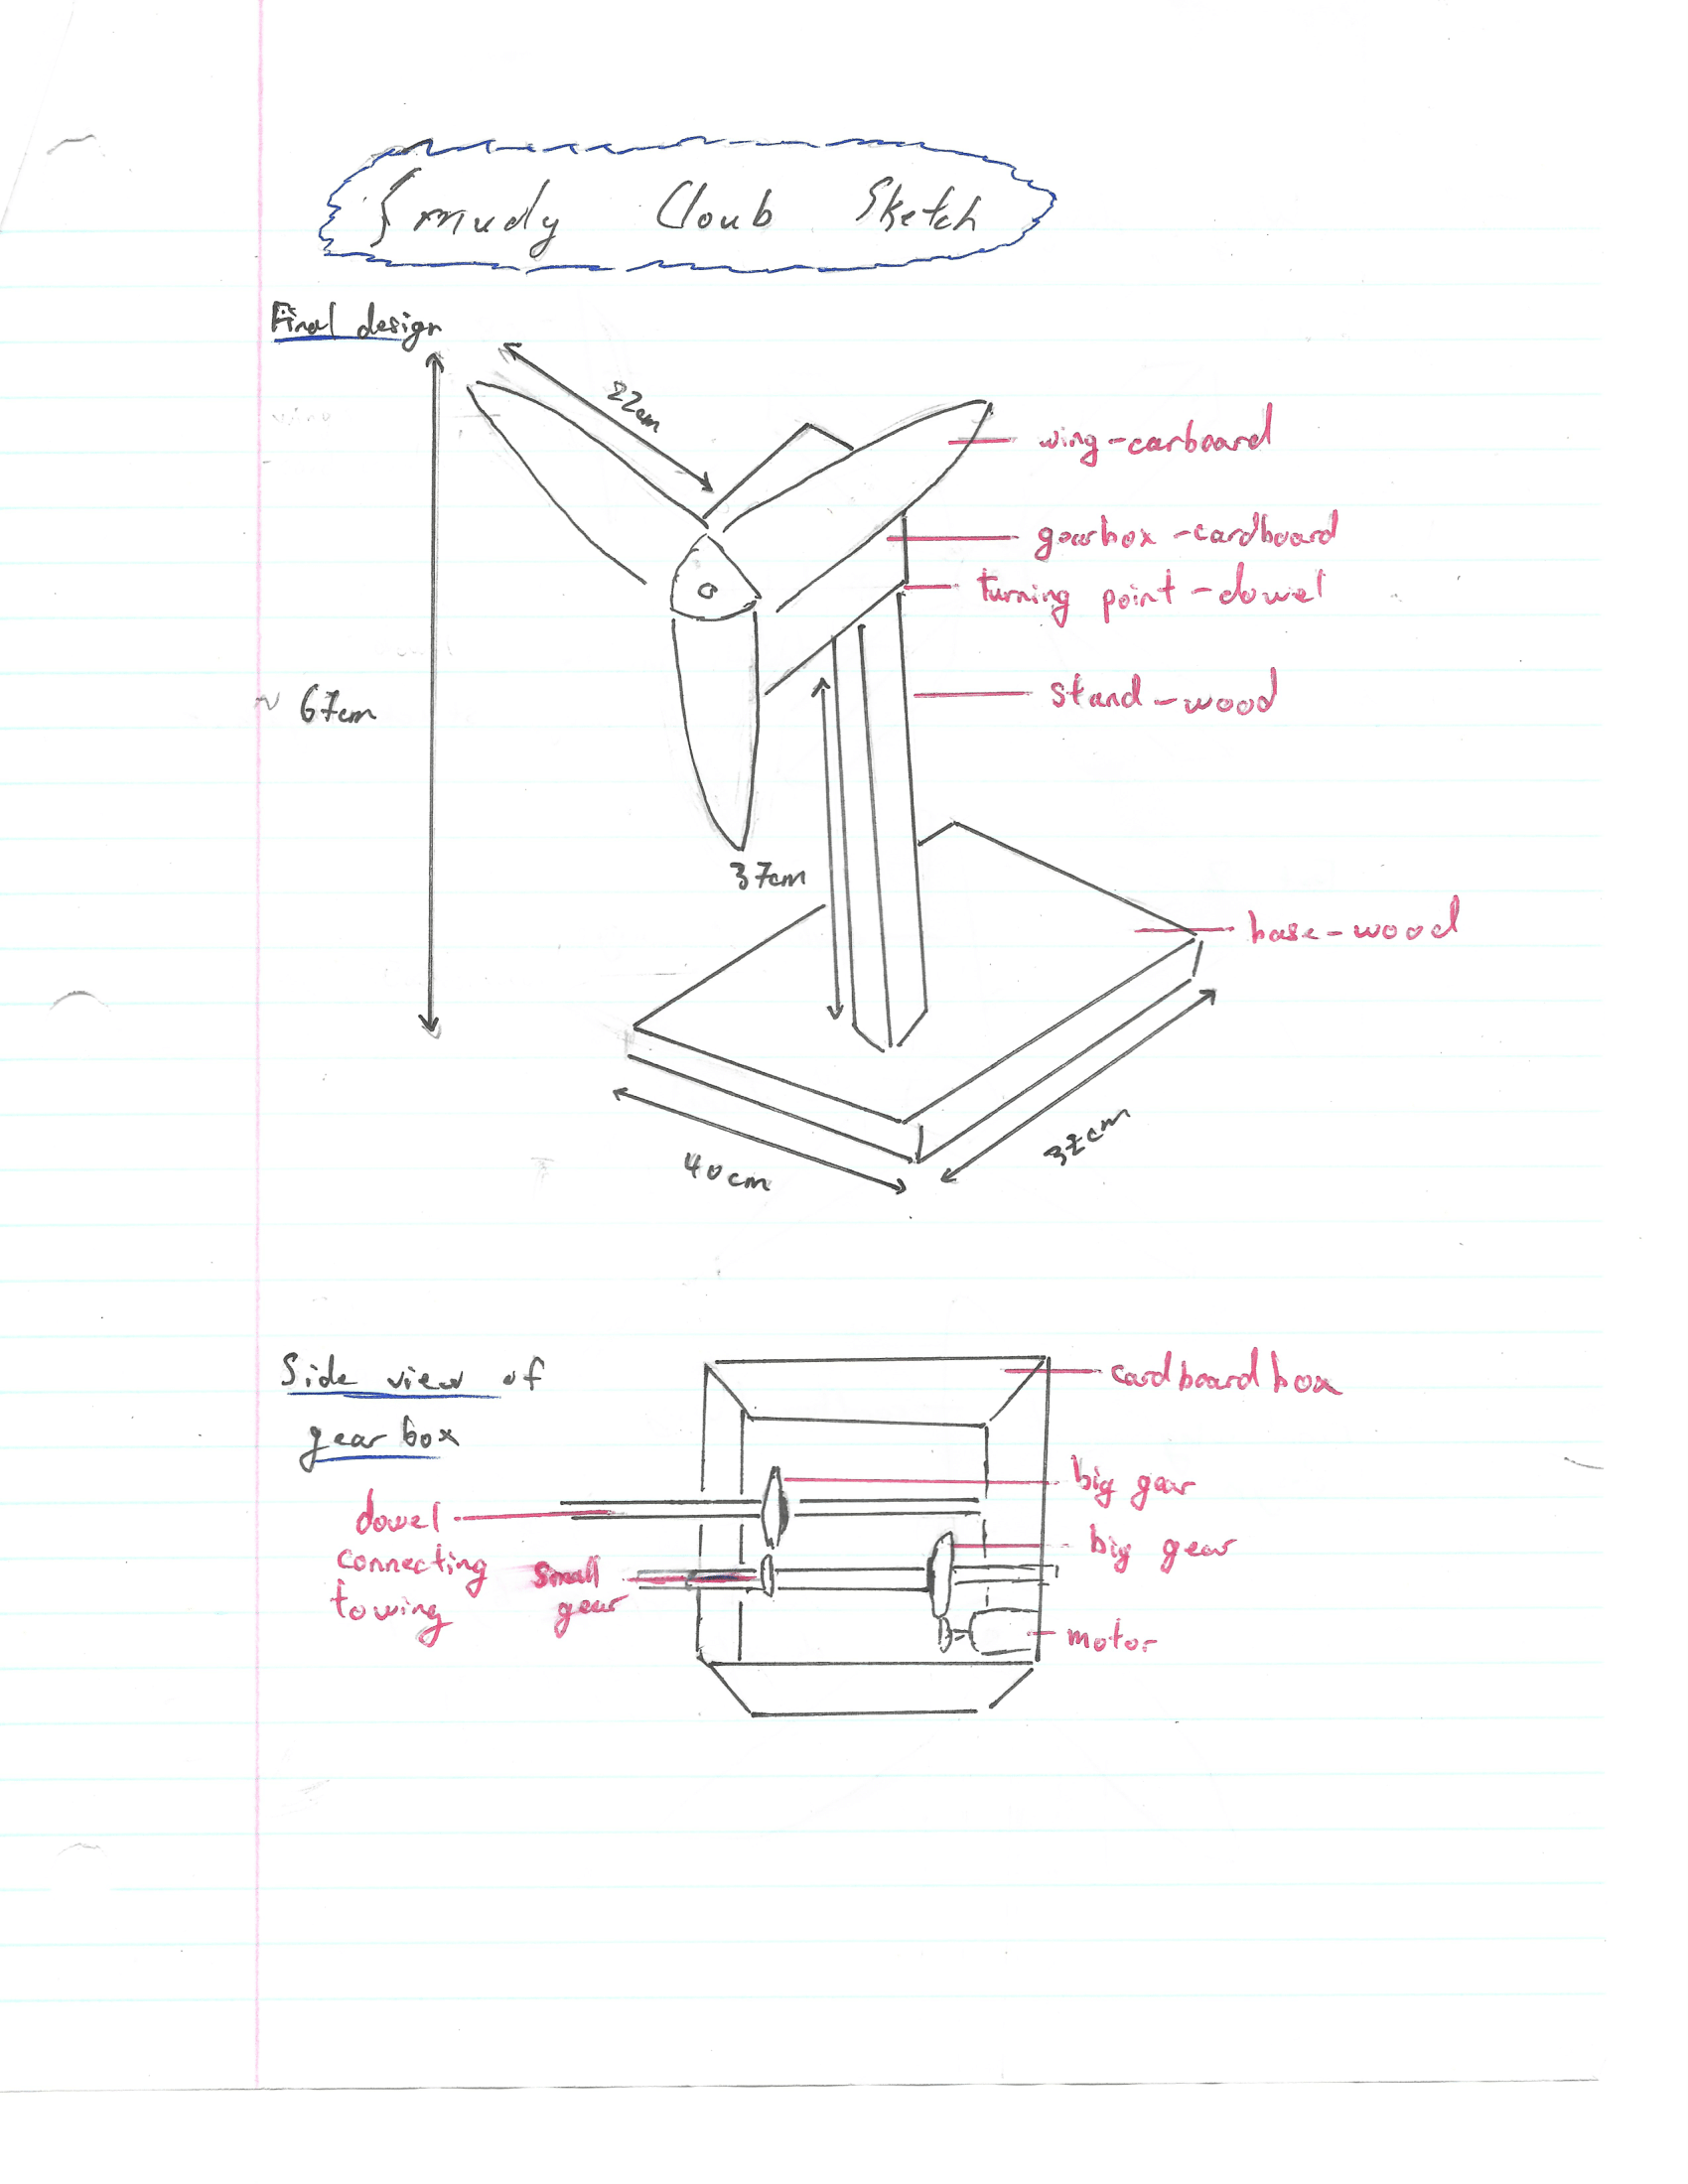 Smudy Cloub Sketch
Final design
22cm
wing-carboard
gearbox -cardboard
turning point -dowel
stand-wood
~ 67cm
37cm
base-wood
40cm
37cm
Side view of
gear box
cardboard box
big gear
dowel
connecting
to wing
small
gear
big gear
motor